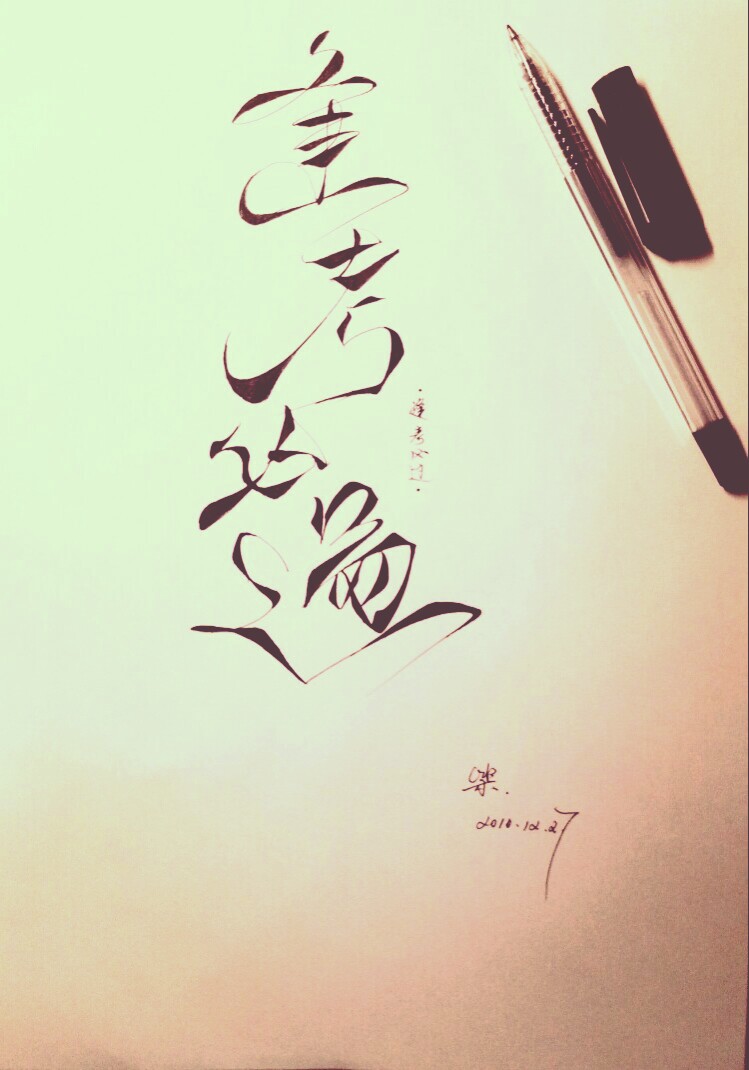 逢考必過
·逢考必過·
梁.
2010.12.27